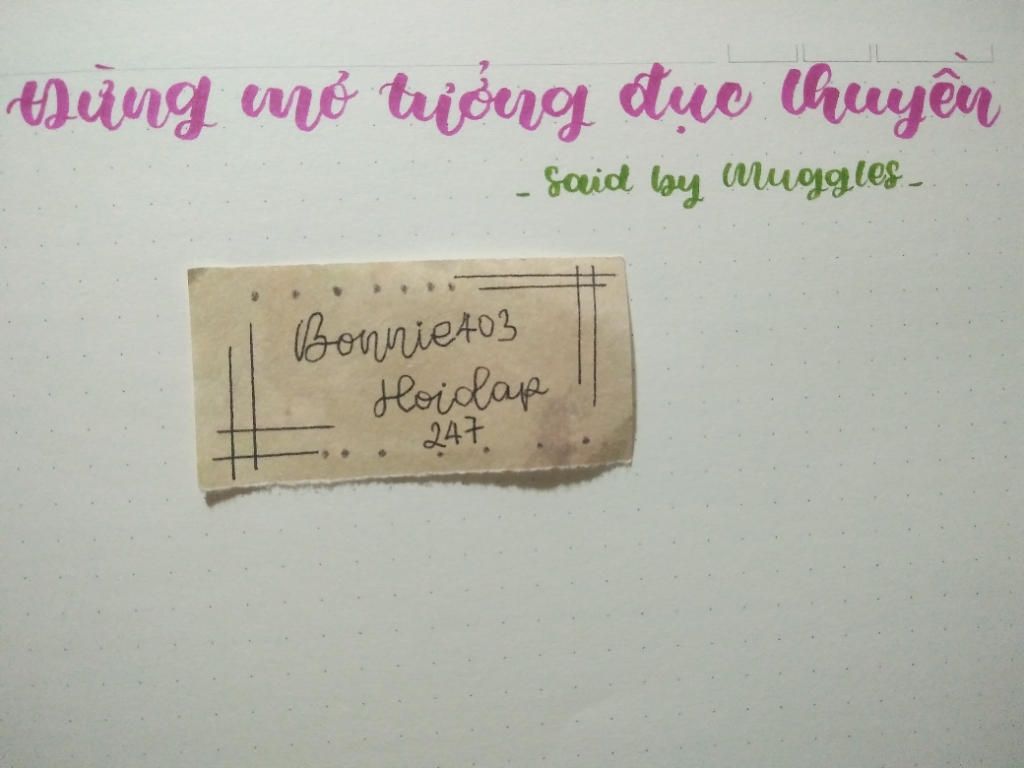 Đừng mó tưởng đục thuyền
- Said by Muggles -
Bonnie403
Hoidap
247